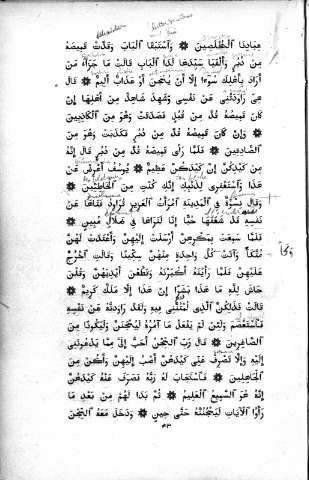 عِبَادِنَا ٱلْمُخْلَصِينَ ✽ وَٱسْتَبَقَا ٱلْبَابَ وَقَدَّتْ قَمِيصَهُ
مِنْ دُبُرٍ وَأَلْفَيَا سَيِّدَهَا لَدَا ٱلْبَابِ قَالَتْ مَا جَزَآءُ مَنْ
أَرَادَ بِأَهْلِكَ سُوٓءًا إِلَّا أَنْ يُسْجَنَ أَوْ عَذَابٌ أَلِيمٌ ✽ قَالَ
هِىَ رَاوَدَتْنِى عَنْ نَفْسِى وَشَهِدَ شَاهِدٌ مِنْ أَهْلِهَا إِنْ
كَانَ قَمِيصُهُ قُدَّ مِنْ قُبُلٍ فَصَدَقَتْ وَهُوَ مِنَ ٱلْكَاذِبِينَ
✽ وَإِنْ كَانَ قَمِيصُهُ قُدَّ مِنْ دُبُرٍ فَكَذَبَتْ وَهُوَ مِنَ
ٱلصَّادِقِينَ ✽ فَلَمَّا رَأَى قَمِيصَهُ قُدَّ مِنْ دُبُرٍ قَالَ إِنَّهُ
مِنْ كَيْدِكُنَّ إِنَّ كَيْدَكُنَّ عَظِيمٌ ✽ يُوسُفُ أَعْرِضْ عَنْ
هَذَا وَٱسْتَغْفِرِى لِذَنْبِكِ إِنَّكِ كُنْتِ مِنَ ٱلْخَاطِئِينَ ✽
وَقَالَ نِسْوَةٌ فِى ٱلْمَدِينَةِ ٱمْرَأَتُ ٱلْعَزِيزِ تُرَاوِدُ فَتَاهَا عَنْ
نَفْسِهِ قَدْ شَغَفَهَا حُبًّا إِنَّا لَنَرَاهَا فِى ضَلَالٍ مُبِينٍ ✽
فَلَمَّا سَمِعَتْ بِمَكْرِهِنَّ أَرْسَلَتْ إِلَيْهِنَّ وَأَعْتَدَتْ لَهُنَّ
مُتَّكَأً وَآتَتْ كُلَّ وَاحِدَةٍ مِنْهُنَّ سِكِّينًا وَقَالَتِ ٱخْرُجْ
عَلَيْهِنَّ فَلَمَّا رَأَيْنَهُ أَكْبَرْنَهُ وَقَطَّعْنَ أَيْدِيَهُنَّ وَقُلْنَ
حَاشَ لِلَّهِ مَا هَذَا بَشَرًا إِنْ هَذَا إِلَّا مَلَكٌ كَرِيمٌ ✽
قَالَتْ فَذَلِكُنَّ ٱلَّذِى لُمْتُنَّنِى فِيهِ وَلَقَدْ رَاوَدْتُهُ عَنْ نَفْسِهِ
فَٱسْتَعْصَمَ وَلَئِنْ لَمْ يَفْعَلْ مَا آمُرُهُ لَيُسْجَنَنَّ وَلَيَكُونًا مِنَ
ٱلصَّاغِرِينَ ✽ قَالَ رَبِّ ٱلسِّجْنُ أَحَبُّ إِلَىَّ مِمَّا يَدْعُونَنِى
إِلَيْهِ وَإِلَّا تَصْرِفْ عَنِّى كَيْدَهُنَّ أَصْبُ إِلَيْهِنَّ وَأَكُنْ مِنَ
ٱلْجَاهِلِينَ ✽ فَٱسْتَجَابَ لَهُ رَبُّهُ فَصَرَفَ عَنْهُ كَيْدَهُنَّ
إِنَّهُ هُوَ ٱلسَّمِيعُ ٱلْعَلِيمُ ✽ ثُمَّ بَدَا لَهُمْ مِنْ بَعْدِ مَا
رَأَوُا ٱلْآيَاتِ لَيَسْجُنُنَّهُ حَتَّى حِينٍ ✽ وَدَخَلَ مَعَهُ ٱلسِّجْنَ